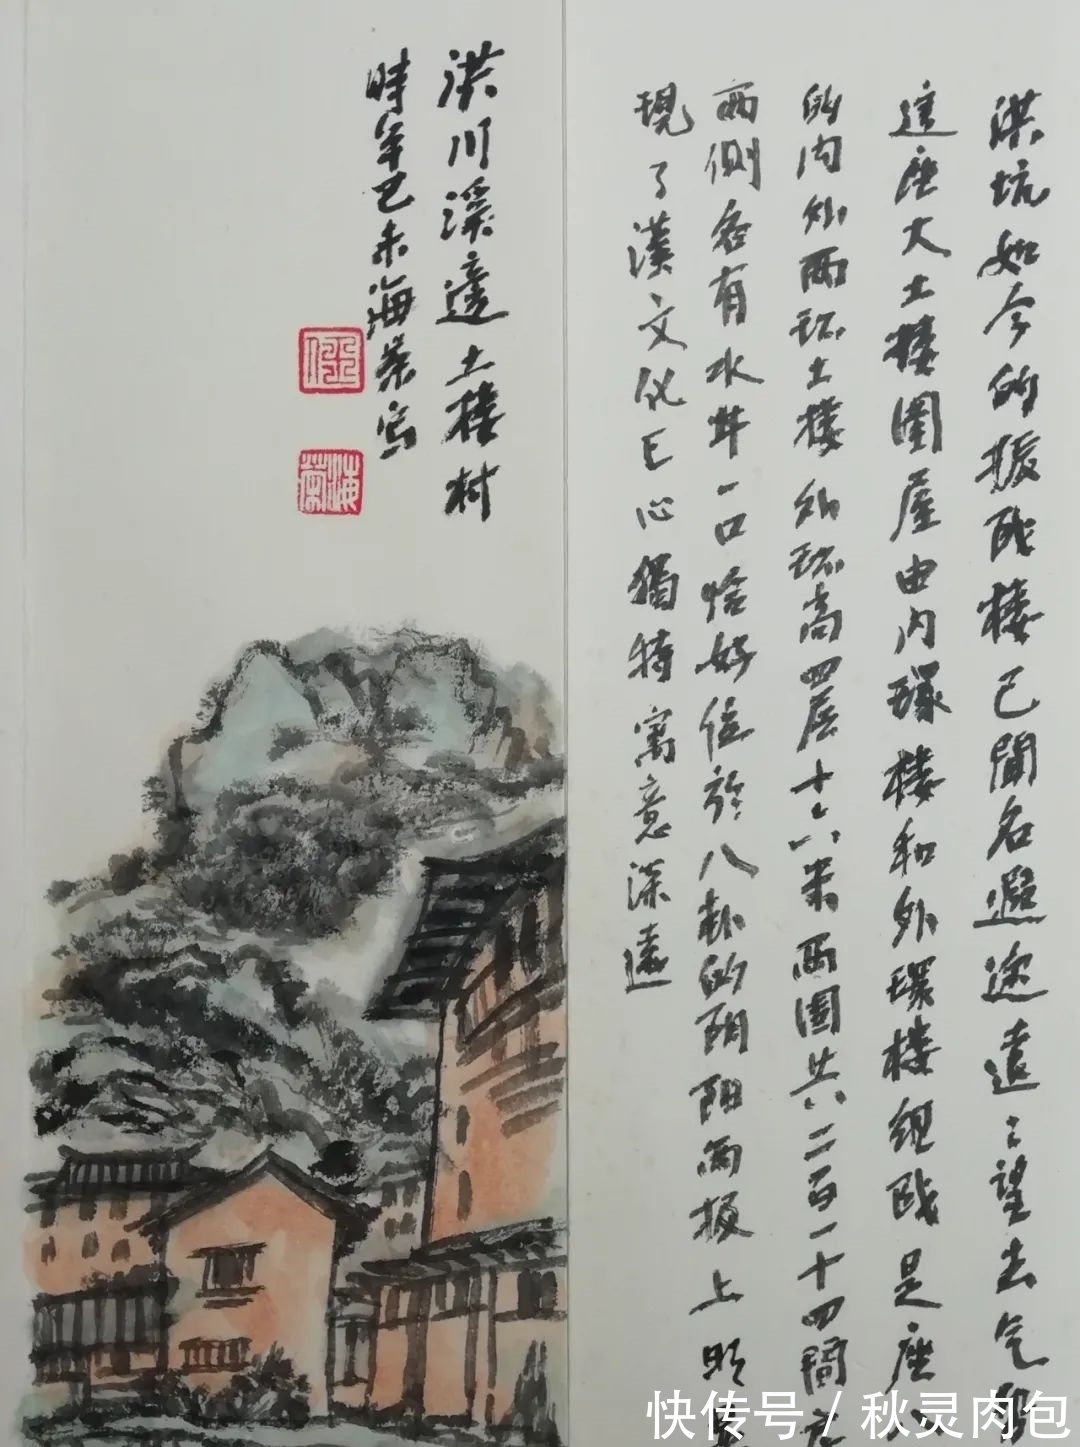 洪坑如今的振成楼已聞名遐迩遠遠望去气
這座大土楼圍屋由内環楼和外環楼组成是座
的内外兩环土楼外环高四层十六米兩圈共六二百一十四間
兩側各有水井一口恰好位於八卦的阴阳兩极上
現了漢文化匠心獨特寓意深遠
洪川溪邊土楼村
時辛巳末海荣写
海荣
快传号/秋灵肉包